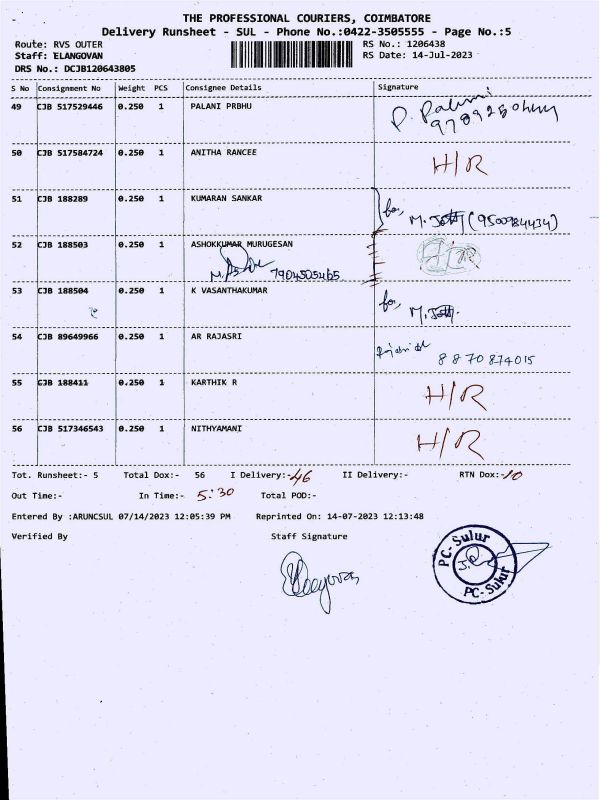 THE PROFESSIONAL COURIERS, COIMBATORE
Delivery Runsheet - SUL - Phone No.:0422-3505555 - Page No.:5
Route: RVS OUTER RS No.: 1206438
Staff: ELANGOVAN RS Date: 14-Jul-2023
DRS No.: DCJB120643805
S No Consignment No Weight PCS Consignee Details Signature
49 CJB 517529446 0.250 1 PALANI PRBHU P. Palani
50 CJB 517584724 0.250 1 ANITHA RANCEE H/R
51 CJB 188289 0.250 1 KUMARAN SANKAR for,
M. (9500984434)
52 CJB 188503 0.250 1 ASHOKKUMAR MURUGESAN H/R
7904505465
53 CJB 188504 0.250 1 K VASANTHAKUMAR for,
54 CJB 89649966 0.250 1 AR RAJASRI
8870874015
55 CJB 188411 0.250 1 KARTHIK R H/R
56 CJB 517346543 0.250 1 NITHYAMANI H/R
Tot. Runsheet:- 5 Total Dox:- 56 I Delivery:- 46 II Delivery:- RTN Dox:- 10
Out Time:- In Time:- 5:30 Total POD:-
Entered By :ARUNCSUL 07/14/2023 12:05:39 PM Reprinted On: 14-07-2023 12:13:48
Verified By Staff Signature
Elangovan
PC- Sulur
PC- Sulur